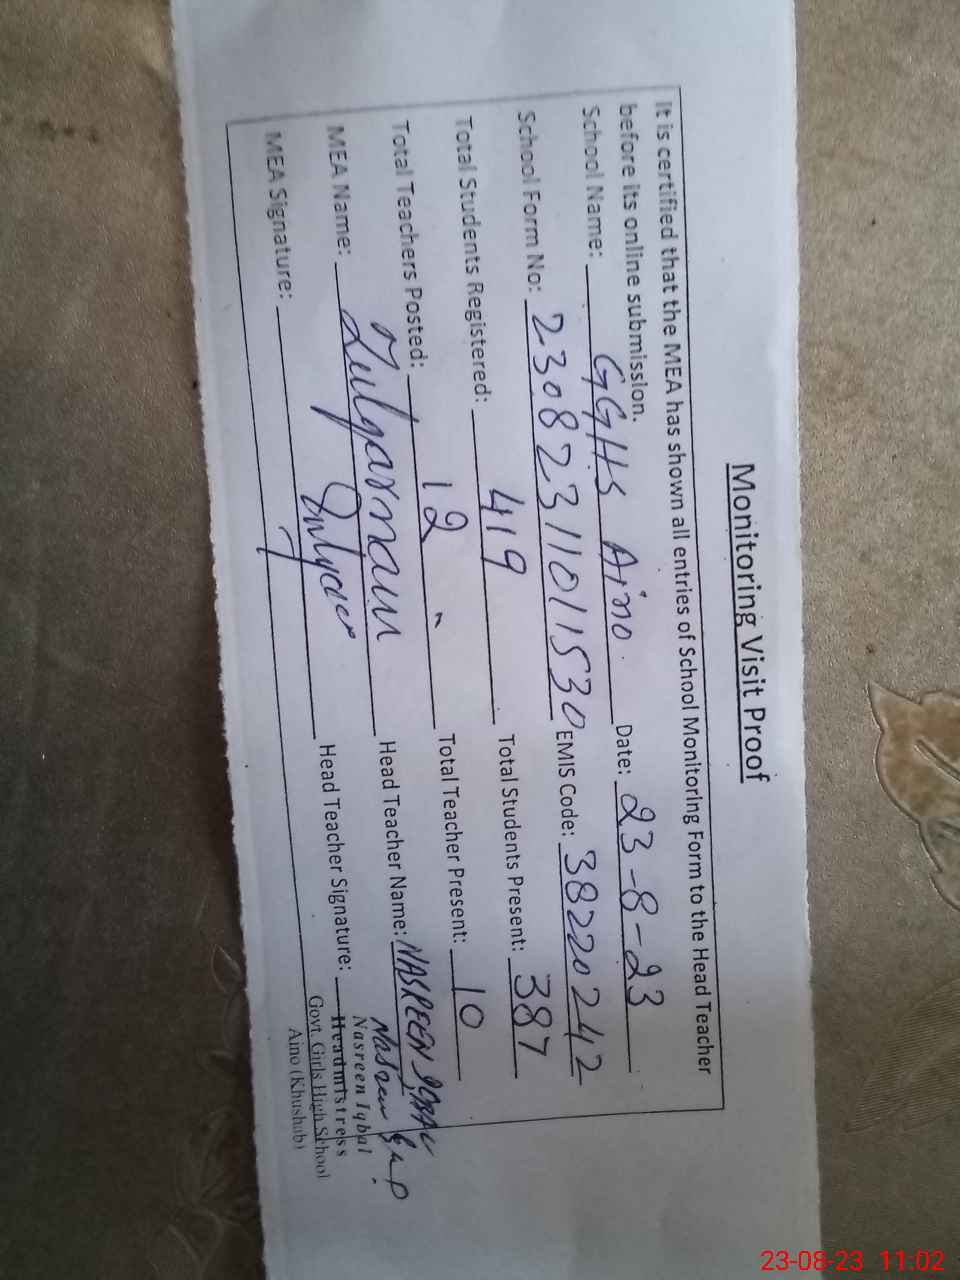 Monitoring Visit Proof
It is certified that the MEA has shown all entries of School Monitoring Form to the Head Teacher
before its online submission.
School Name: GGHS Aino Date: 23-8-23
School Form No: 23082311011530 EMIS Code: 38220242
Total Students Registered: 419 Total Students Present: 387
Total Teachers Posted: 12 Total Teacher Present: 10
MEA Name: Head Teacher Name: NASREEN IQBAL
MEA Signature: Head Teacher Signature:
Nasreen Iqbal
Headmistress
Govt. Girls High School
Aino (Khushab)
23-08-23 11:02